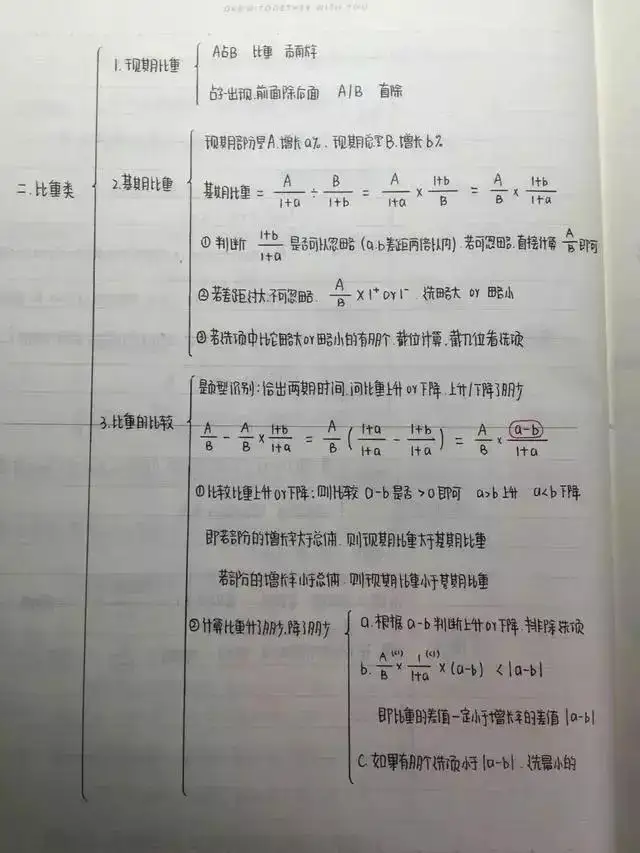 二.比重类
1.现期比重
A占B 比重 百分率
占字出现.前面除后面 A/B 直除
2.基期比重
现期部分量A.增长a%.现期总量B.增长b%
基期比重 = A/(1+a) ÷ B/(1+b) = A/(1+a) × (1+b)/B = A/B × (1+b)/(1+a)
①判断 (1+b)/(1+a) 是否可以忽略(a.b差距两倍以内).若可忽略.直接计算 A/B 即可
②若差距过大.不可忽略. A/B × 1⁺ or 1⁻ .选略大 or 略小
③若选项中比它略大or略小的有好几个.截位计算.截几位看选项
3.比重的比较
题型识别:给出两期时间.问比重上升or下降.上升/下降了多少
A/B - A/B × (1+b)/(1+a) = A/B ((1+a)/(1+a) - (1+b)/(1+a)) = A/B × (a-b)/(1+a)
①比较比重上升or下降:则比较 a-b是否>0即可 a>b上升 a<b下降
即若部分的增长率大于总体.则现期比重大于基期比重
若部分的增长率小于总体.则现期比重小于基期比重
②计算比重升了多少.降了多少
a.根据a-b判断上升or下降.排除选项
b. A/B (<1) × 1/(1+a) (<1) × (a-b) < |a-b|
即比重的差值一定小于增长率的差值 |a-b|
C.如果有多个选项小于|a-b|.选最小的